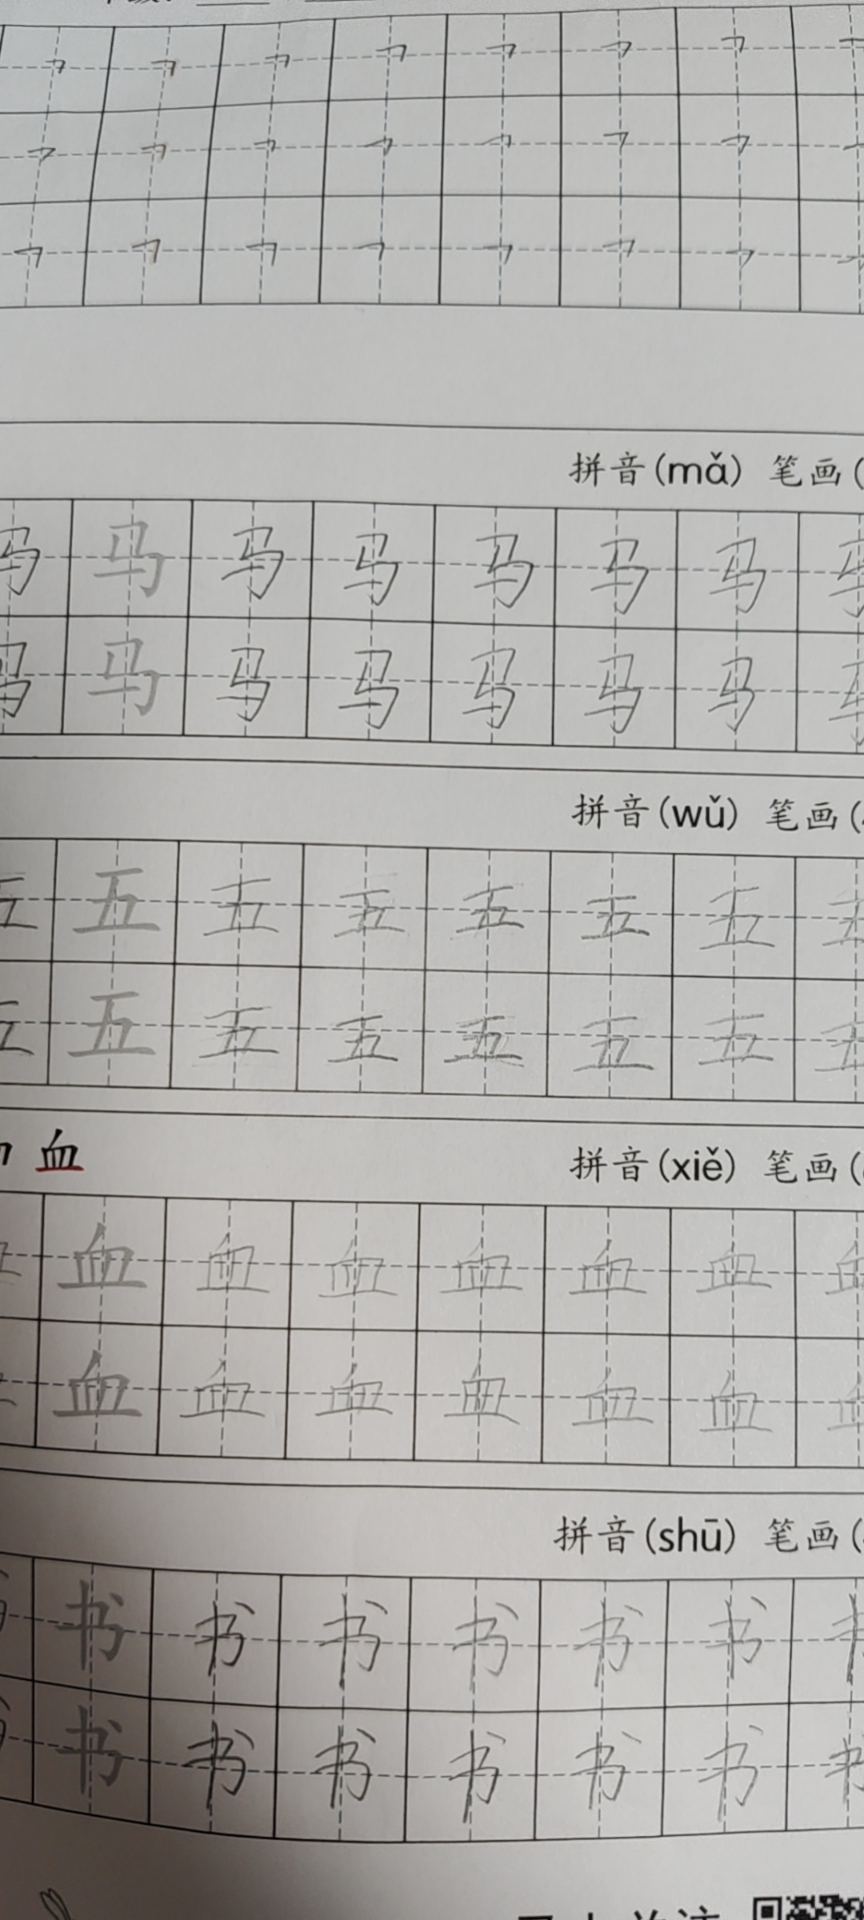 拼音(mǎ) 笔画(
马 马 马 马 马 马 马 马
马 马 马 马 马 马 马 马
拼音(wǔ) 笔画(
五 五 五 五 五 五 五 五
五 五 五 五 五 五 五 五
血 拼音(xiě) 笔画(
血 血 血 血 血 血 血
血 血 血 血 血 血 血
拼音(shū) 笔画(
书 书 书 书 书 书 书 书
书 书 书 书 书 书 书 书